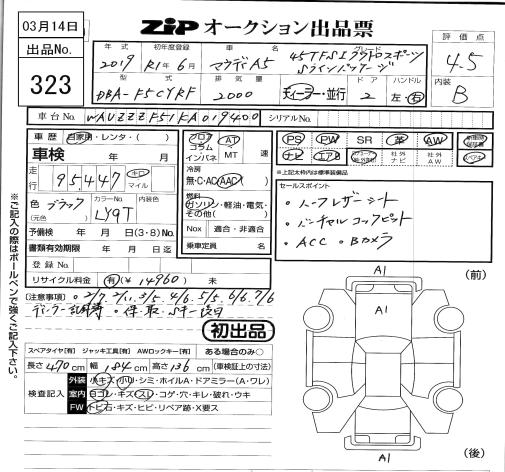 03月14日
出品No.
323
ZiP オークション出品票
年式 初年度登録 車名 グレード
2019 R1年6月 アウディA5 45TFSIクワトロスポーツ
Sラインパッケージ
型式 排気量 ドア ハンドル
DBA-F5CYRF 2000 ディーラー・並行 2 左・右
評価点
4.5
内装
B
車台No. WAUZZZF51KA019400 シリアルNo.
車歴 自家用・レンタ・( )
車検 年 月
走行 95,447 キロ マイル
色 ブラック
(元色)
カラーNo. LY9T 内装色
予備検 年 月 日(3・8)No.
書類有効期限 年 月 日迄
登録No.
リサイクル料金 有(¥14960) 未
フロア コラム インパネ
AT
MT 速
冷房
無・C・AC(AAC)
燃料
ガソリン・軽油・電気・
その他( )
Nox 適合・非適合
乗車定員 名
PS PW SR 革 AW
ナビ エアB 社外ナビ 社外AW
※上記太枠内は標準装備品
セールスポイント
・ハーフレザーシート
・バーチャルコックピット
・ACC ・Bカメラ
(注意事項)
初出品
スペアタイヤ[有] ジャッキ工具[有] AWロックキー[有] ある場合のみ○
長さ470cm 幅184cm 高さ136cm (車検証上の寸法)
検査記入
外装 小キズ・小凹・シミ・ホイルA・ドアミラー(A・ワレ)
室内 ヨゴレ・キズ・スレ・コゲ・穴・キレ・破れ・ウキ
FW トビ石・キズ・ヒビ・リペア跡・X要ス
※ご記入の際はボールペンで強くご記入下さい。
A1
(前)
A1
A1
(後)